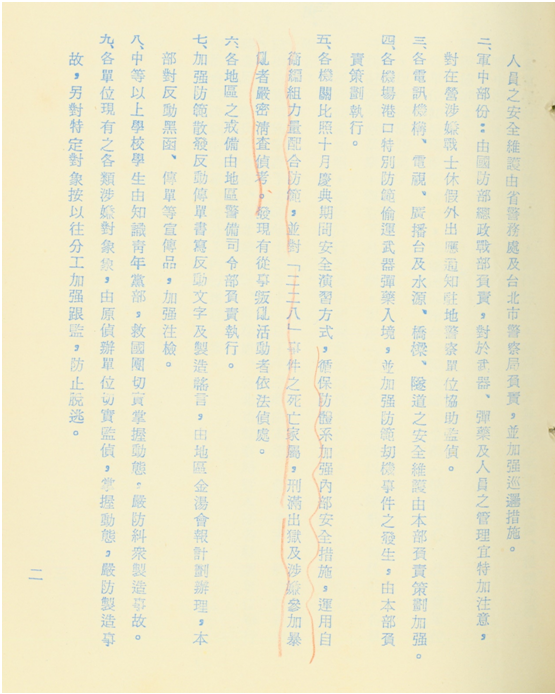 人員之安全維護由省警務處及台北市警察局負責，並加强巡邏措施。
二、軍中部份：由國防部總政戰部負責，對於武器、彈藥及人員之管理宜特加注意，
對在營涉嫌戰士休假外出應通知駐地警察單位協助監偵。
三、各電訊機構、電視、廣播台及水源、橋樑、隧道之安全維護由本部負責策劃加强。
四、各機場港口特別防範偷運武器彈藥入境，並加强防範刧機事件之發生，由本部負
責策劃執行。
五、各機關比照十月慶典期間安全演習方式，循保防製系加强內部安全措施，運用自
衞編組力量配合防範，並對「二二八」事件之死亡家屬，刑滿出獄及涉嫌參加暴
亂者嚴密清查偵考。發現有從事叛亂活動者依法偵處。
六、各地區之戒備由地區警備司令部負責執行。
七、加强防範散發反動傳單書寫反動文字及製造謠言，由地區金湯會報計劃辦理，本
部對反動黑函、傳單等宣傳品，加强注檢。
八、中等以上學校學生由知識青年黨部，救國團切實掌握動態。嚴防糾衆製造事故。
九、各單位現有之各類涉嫌對象，由原偵辦單位切實監偵，掌握動態，嚴防製造事
故，另對特定對象按以往分工加强跟監，防止脫逃。
二